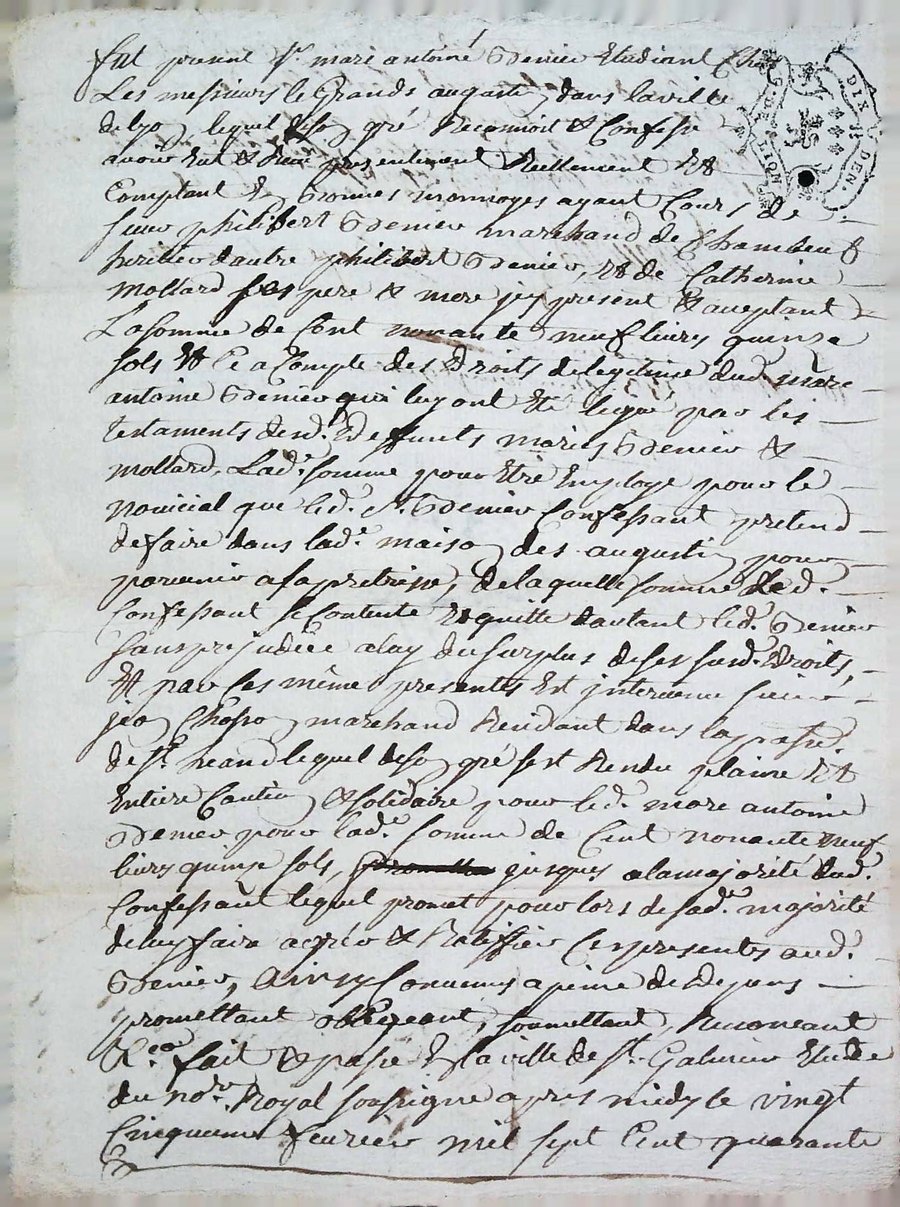 fut present Sr. marc antoine Grenier Etudiant Chez
Les messieurs le Grands augusti, dans la ville
de lyo, lequel deso, gré Reconnoit & Confesse
avoir Eut & Reçu presentement Reellement Et
Comptant En bonnes monnoyes ayant Cours de
sieur philibert Grenier marchand de Chambeuf
heritier dautre philibert Grenier, Et de Catherine
Mollard ses pere & mere jcy present & aceptant
La somme de Cent nonante neuf livres quinze
sols Et Ce a Compte des Droits de legitime dud. marc
antoine Grenier qui luy ont Eté legué par les
testaments desd. Deffunts mariés Grenier &
mollard, Lad.e somme pour Etre Employé pour le
noviciat que led. Sr. Grenier Confessant pretend
de faire dans lad.e maiso, des augusti, pour
parvenir a la pretrise, de laquelle somme Led.
Confessant se Contente Et quitte dautant led. Grenier
sans prejudice a luy du surplus de ses susd. Droits,
Et par Ces même presentes Est jntervenu sieur
jea, marchand Residant dans la parr.
de St. heand lequel deso, gré sest Rendu plaine Et
Entiere Cautio, & solidaire pour led. marc antoine
Grenier pour lad.e somme de Cent nonante neuf
livres quinze sols, jusques a la majorité dud.
Confessant lequel promet pour lors de sad.e majorité
de luy faire agréer & Ratiffier Ces presentes aud.
Grenier, Ainsy Convenus a peine de Depens
promettant obligeant, soumettant, Renonceant
&.ca fait & passé En la ville de St. Galmier Etude
du no.re Royal soussigne apres midy le vingt
Cinquieme fevrier mil sept Cent quarante
G. D. LION
DIX DEN